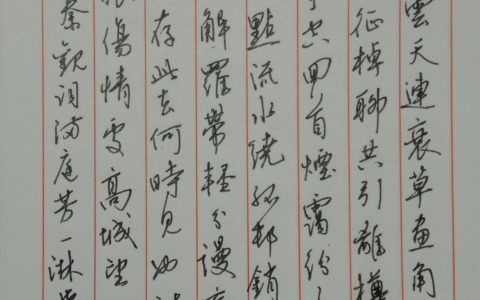 雲天連衰草畫角
征棹聊共引離樽
空回首煙靄紛
點流水繞孤邨銷
解羅帶輕分謾
存此去何時見也
傷情處高城望
秦觀詞滿庭芳一